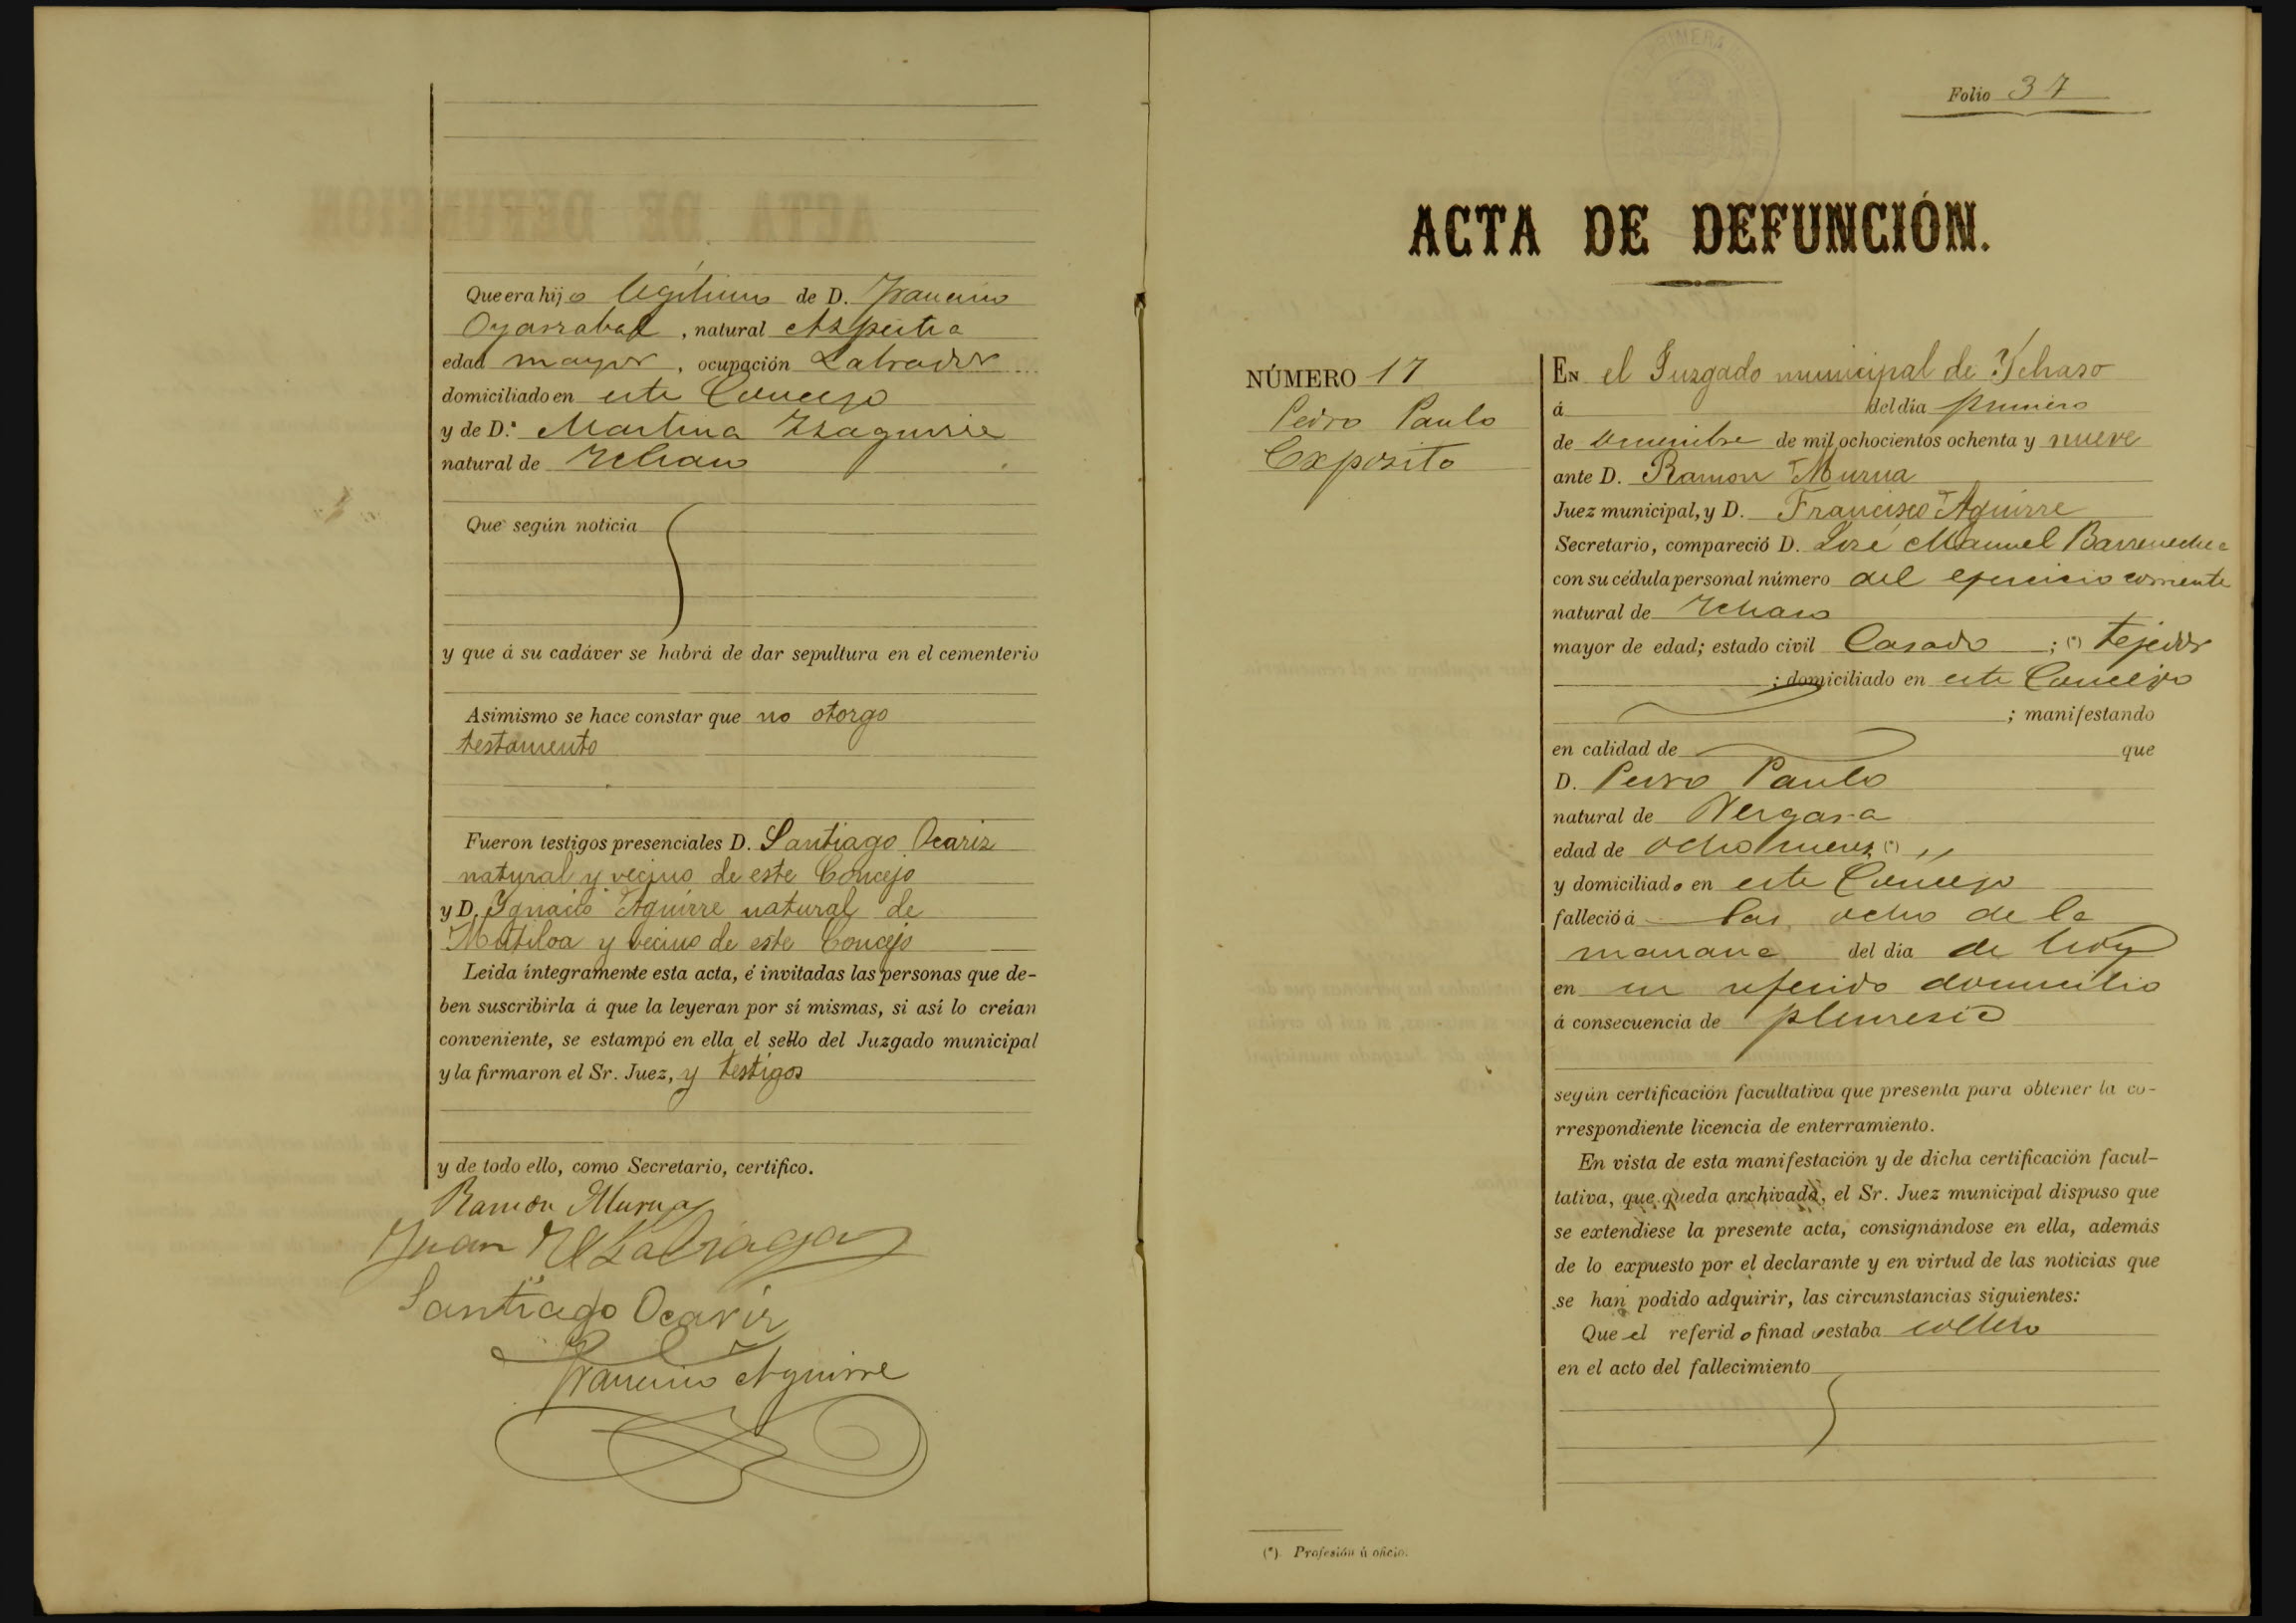 Que era hijo legitimo de D. Francisco
Oyarzabal, natural Azpeitia
edad mayor, ocupación Labrador
domiciliado en este Concejo
y de D.ª Martina Yzaguirre
natural de Ychaso
Que según noticia
y que á su cadáver se habrá de dar sepultura en el cementerio
Asimismo se hace constar que no otorgo
testamento
Fueron testigos presenciales D. Santiago Ocariz
natural y vecino de este Concejo
y D. Ygnacio Aguirre natural de
Mutiloa y vecino de este Concejo
Leida íntegramente esta acta, é invitadas las personas que de-
ben suscribirla á que la leyeran por sí mismas, si así lo creían
conveniente, se estampó en ella el sello del Juzgado municipal
y la firmaron el Sr. Juez, y testigos
y de todo ello, como Secretario, certifico.
Ramon Murua
Juan
Santiago Ocariz
Francisco Aguirre
Folio 37
ACTA DE DEFUNCIÓN.
NÚMERO 17
Pedro Paulo
Exposito
EN el Juzgado municipal de Ychaso
á del dia primero
de de mil ochocientos ochenta y nueve
ante D. Ramon Murua
Juez municipal, y D. Francisco Aguirre
Secretario, compareció D. José Manuel Barrenechea
con su cédula personal número del ejercicio corriente
natural de Ychaso
mayor de edad; estado civil Casado ; (*) tejedor
; domiciliado en este Concejo
; manifestando
en calidad de que
D. Pedro Paulo
natural de Vergara
edad de ocho meses (*) "
y domiciliado en este Concejo
falleció á las ocho de la
manana del dia de hoy
en su referido domicilio
á consecuencia de pleuresia
según certificación facultativa que presenta para obtener la co-
rrespondiente licencia de enterramiento.
En vista de esta manifestación y de dicha certificación facul-
tativa, que queda archivada, el Sr. Juez municipal dispuso que
se extendiese la presente acta, consignándose en ella, además
de lo expuesto por el declarante y en virtud de las noticias que
se han podido adquirir, las circunstancias siguientes:
Que el referido finado estaba soltero
en el acto del fallecimiento
(*). Profesión ú oficio.